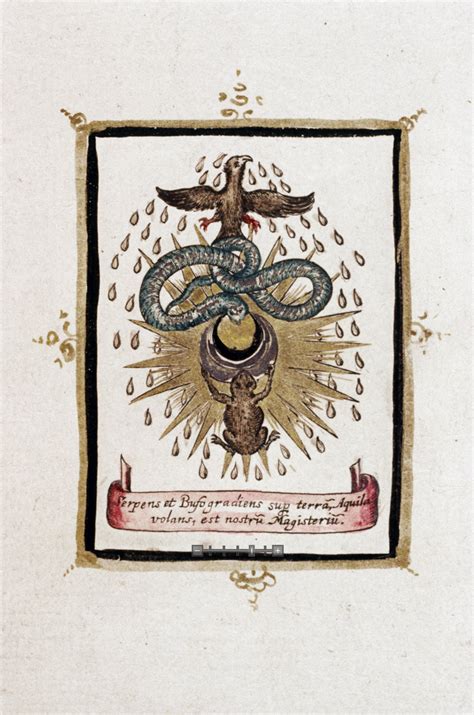 Serpens et Bufo gradiens sup terrā, Aquila
volans, est nostrū Magisteriū.